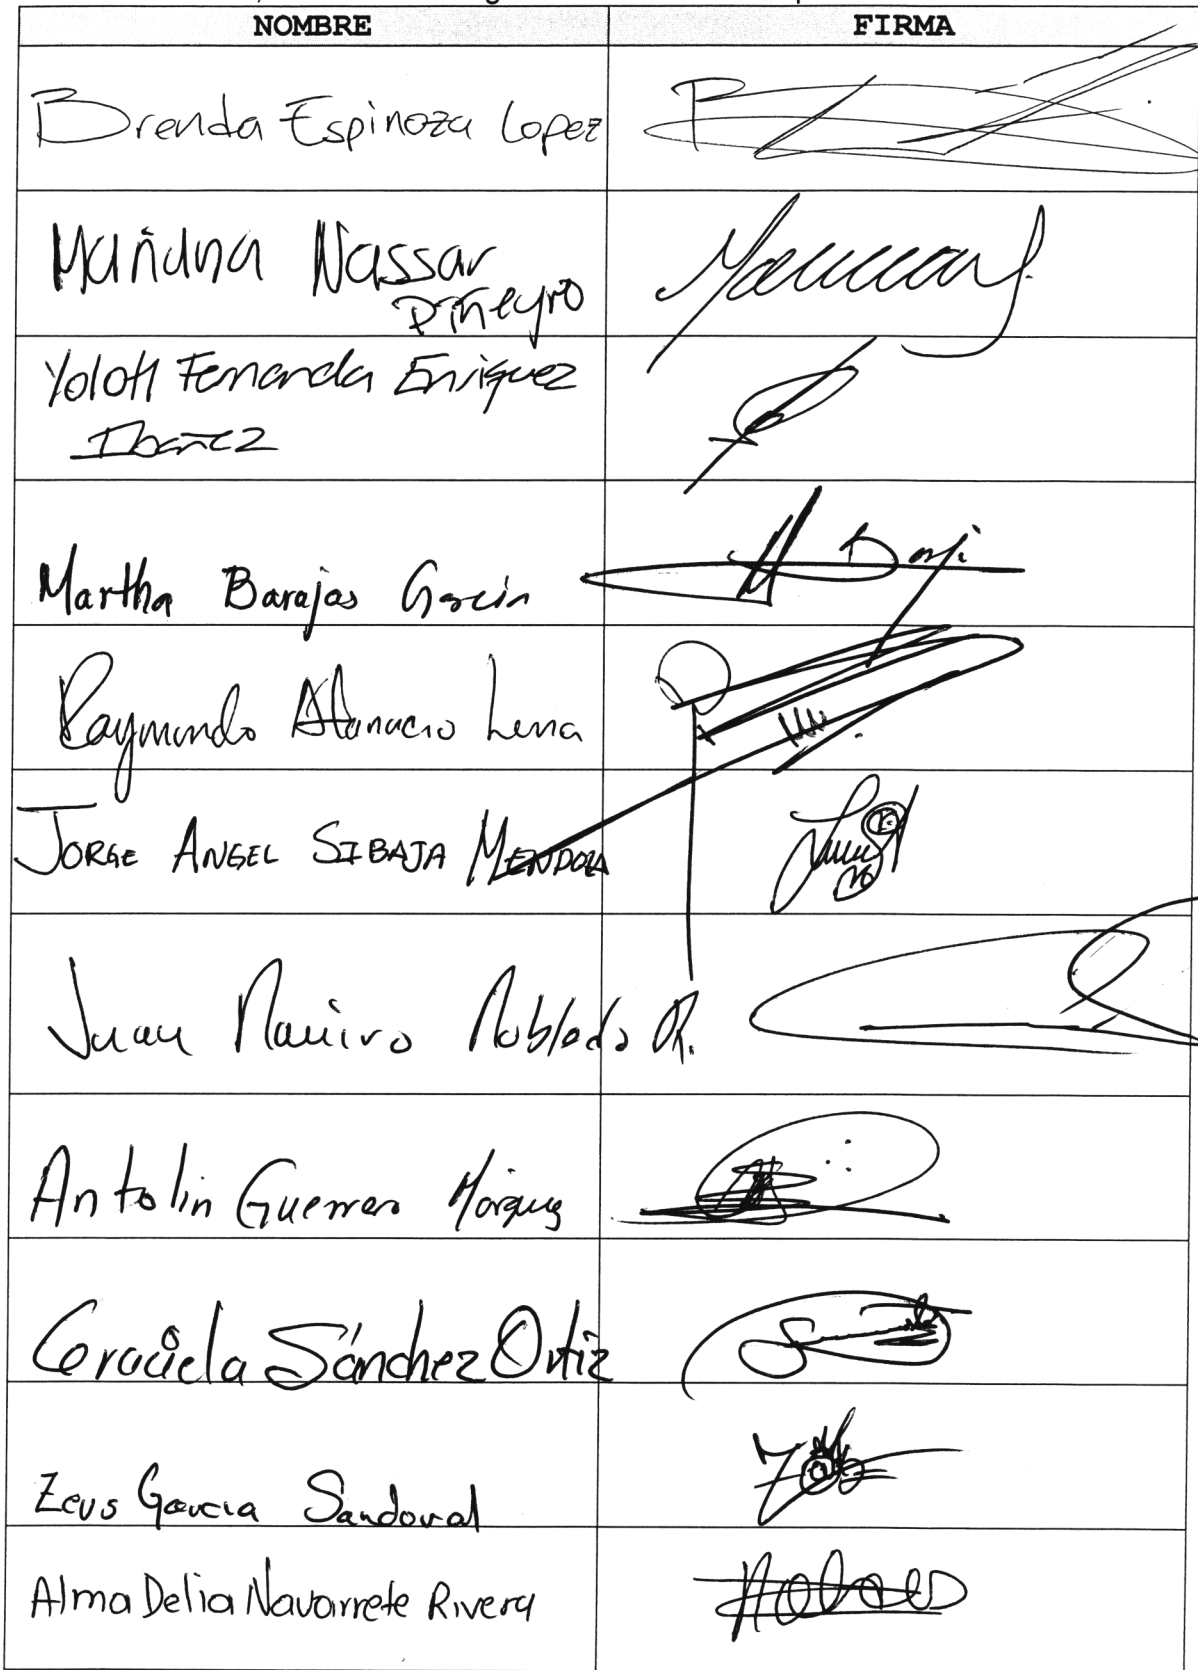 NOMBRE FIRMA
Brenda Espinoza Lopez
Mañana Nassar
Piñeyro
Yolotl Fernanda Enriquez
Ibañez
Martha Barajas García
Raymundo Atanacio Luna
JORGE ANGEL SIBAJA MENDOZA
Juan Ramiro Robledo R.
Antolin Guerrero Márquez
Graciela Sánchez Ortiz
Zeus García Sandoval
Alma Delia Navarrete Rivera